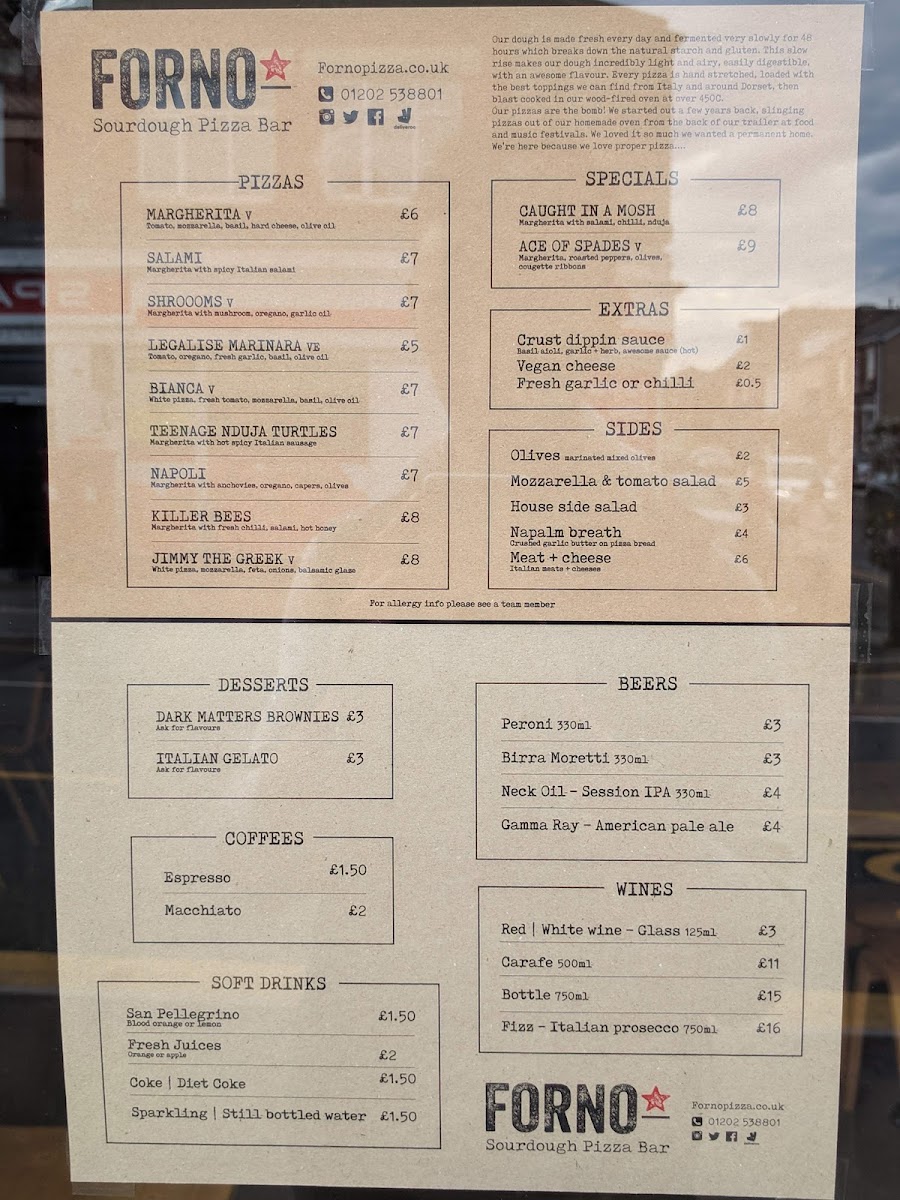 FORNO
Sourdough Pizza Bar
Fornopizza.co.uk
01202 538801
deliveroo
Our dough is made fresh every day and fermented very slowly for 48
hours which breaks down the natural starch and gluten. This slow
rise makes our dough incredibly light and airy, easily digestible,
with an awesome flavour. Every pizza is hand stretched, loaded with
the best toppings we can find from Italy and around Dorset, then
blast cooked in our wood-fired oven at over 450C.
Our pizzas are the bomb! We started out a few years back, slinging
pizzas out of our homemade oven from the back of our trailer at food
and music festivals. We loved it so much we wanted a permanent home.
We're here because we love proper pizza....
PIZZAS
MARGHERITA V £6
Tomato, mozzarella, basil, hard cheese, olive oil
SALAMI £7
Margherita with spicy Italian salami
SHROOOMS V £7
Margherita with mushroom, oregano, garlic oil
LEGALISE MARINARA VE £5
Tomato, oregano, fresh garlic, basil, olive oil
BIANCA V £7
White pizza, fresh tomato, mozzarella, basil, olive oil
TEENAGE NDUJA TURTLES £7
Margherita with hot spicy Italian sausage
NAPOLI £7
Margherita with anchovies, oregano, capers, olives
KILLER BEES £8
Margherita with fresh chilli, salami, hot honey
JIMMY THE GREEK V £8
White pizza, mozzarella, feta, onions, balsamic glaze
SPECIALS
CAUGHT IN A MOSH £8
Margherita with salami, chilli, nduja
ACE OF SPADES V £9
Margherita, roasted peppers, olives,
cougette ribbons
EXTRAS
Crust dippin sauce £1
Basil aioli, garlic + herb, awesome sauce (hot)
Vegan cheese £2
Fresh garlic or chilli £0.5
SIDES
Olives marinated mixed olives £2
Mozzarella & tomato salad £5
House side salad £3
Napalm breath £4
Crushed garlic butter on pizza bread
Meat + cheese £6
Italian meats + cheeses
For allergy info please see a team member
DESSERTS
DARK MATTERS BROWNIES £3
Ask for flavours
ITALIAN GELATO £3
Ask for flavours
COFFEES
Espresso £1.50
Macchiato £2
SOFT DRINKS
San Pellegrino £1.50
Blood orange or lemon
Fresh Juices £2
Orange or apple
Coke | Diet Coke £1.50
Sparkling | Still bottled water £1.50
BEERS
Peroni 330ml £3
Birra Moretti 330ml £3
Neck Oil - Session IPA 330ml £4
Gamma Ray - American pale ale £4
WINES
Red | White wine - Glass 125ml £3
Carafe 500ml £11
Bottle 750ml £15
Fizz - Italian prosecco 750ml £16
FORNO
Sourdough Pizza Bar
Fornopizza.co.uk
01202 538801
deliveroo